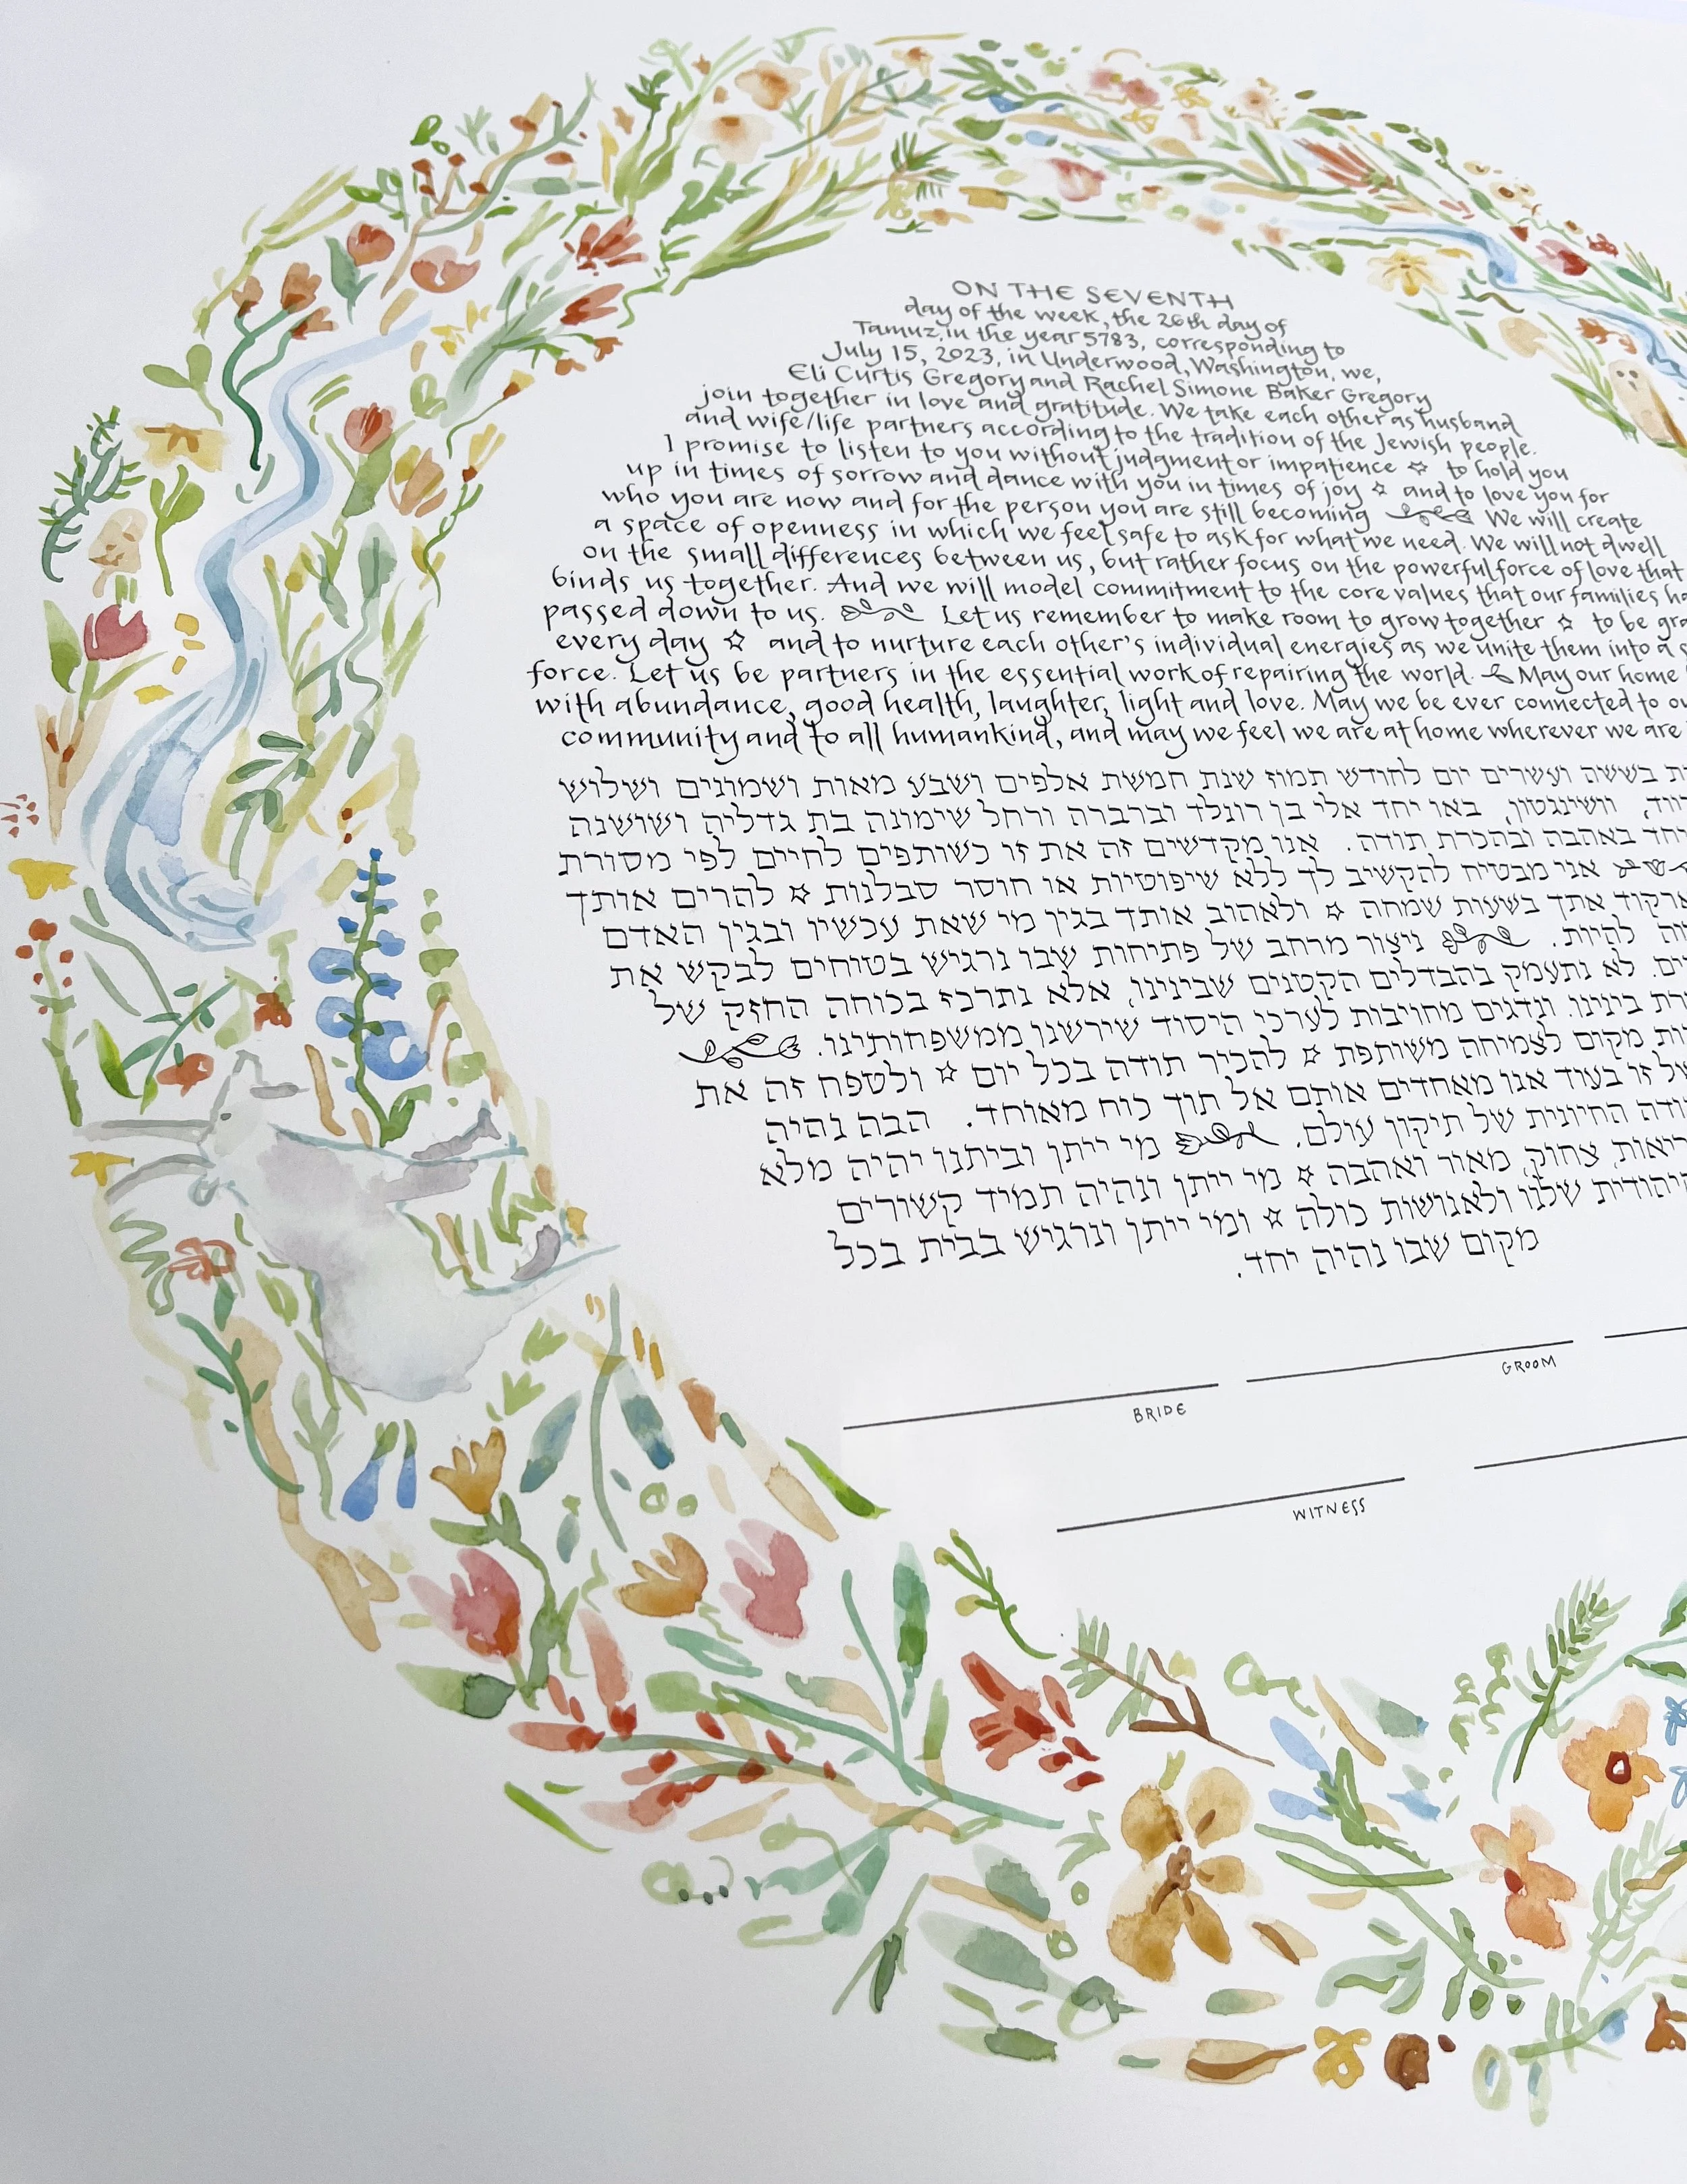 ON THE SEVENTH
day of the week, the 26th day of
Tamuz, in the year 5783, corresponding to
July 15, 2023, in Underwood, Washington, we,
Eli Curtis Gregory and Rachel Simone Baker Gregory
join together in love and gratitude. We take each other as husband
and wife/life partners according to the tradition of the Jewish people.
I promise to listen to you without judgment or impatience ✧ to hold you
up in times of sorrow and dance with you in times of joy ✧ and to love you for
who you are now and for the person you are still becoming We will create
a space of openness in which we feel safe to ask for what we need. We will not dwell
on the small differences between us, but rather focus on the powerful force of love that
binds us together. And we will model commitment to the core values that our families ha
passed down to us. Let us remember to make room to grow together ✧ to be gra
every day ✧ and to nurture each other's individual energies as we unite them into a s
force. Let us be partners in the essential work of repairing the world. May our home
with abundance, good health, laughter, light and love. May we be ever connected to ou
community and to all humankind, and may we feel we are at home wherever we are
בששה ועשרים יום לחודש תמוז שנת חמשת אלפים ושבע מאות ושמונים ושלוש
וושינגטון, באו יחד אלי בן רונלד וברברה ורחל שימונה בת גדליה ושושנה
יחד באהבה ובהכרת תודה. אנו מקדשים זה את זו כשותפים לחיים לפי מסורת
אני מבטיח להקשיב לך ללא שיפוטיות או חוסר סבלנות ✧ להרים אותך
ארקוד אתך בשעות שמחה ✧ ולאהוב אותך בגין מי שאת עכשיו ובגין האדם
להיות. ניצור מרחב של פתיחות שבו נרגיש בטוחים לבקש את
לא נתעמק בהבדלים הקטנים שבינינו, אלא נתרכז בכוחה החזק של
בינינו. ונדגים מחויבות לערכי היסוד שירשנו ממשפחותינו.
מקום לצמיחה משותפת ✧ להכיר תודה בכל יום ✧ ולטפח זה את
של זו בעוד אנו מאחדים אותם אל תוך כוח מאוחד. הבה נהיה
החיונית של תיקון עולם. מי ייתן וביתנו יהיה מלא
צחוק, מאור ואהבה ✧ מי ייתן ונהיה תמיד קשורים
שלנו ולאנושות כולה ✧ ומי ייתן ונרגיש בבית בכל
מקום שבו נהיה יחד.
BRIDE GROOM
WITNESS